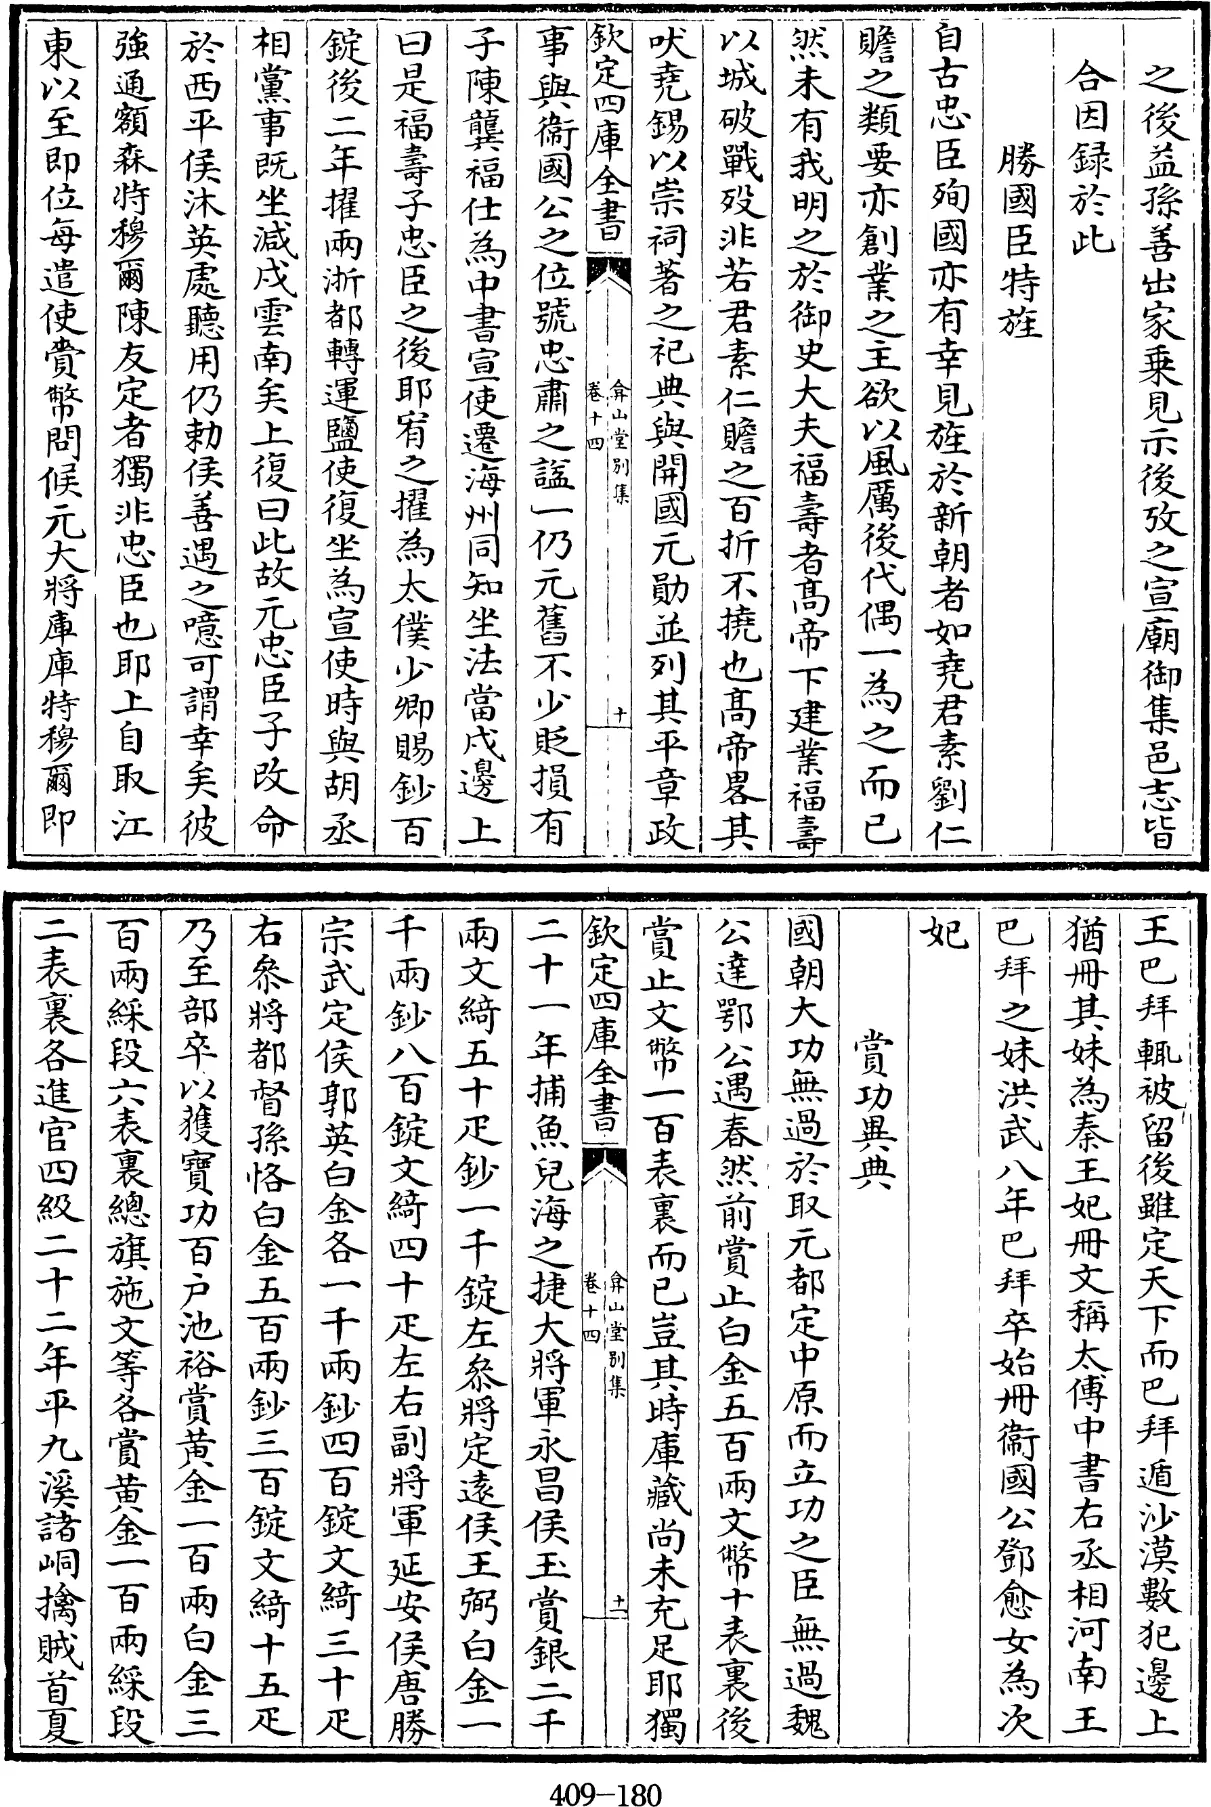 之後益孫善出家乗見示後攷之宣廟御集邑志皆
合因録於此
勝國臣特旌
自古忠臣殉國亦有幸見旌於新朝者如堯君素劉仁
贍之類要亦創業之主欲以風厲後代偶一為之而已
然未有我明之於御史大夫福壽者髙帝下建業福壽
以城破戰殁非若君素仁贍之百折不撓也髙帝畧其
吠堯錫以崇祠著之祀典與開國元勛並列其平章政
欽定四庫全書
弇山堂別集
卷十四
十
事與衞國公之位號忠肅之諡一仍元舊不少貶損有
子陳龔福仕為中書宣使遷海州同知坐法當戍邊上
曰是福壽子忠臣之後耶宥之擢為太僕少卿賜鈔百
錠後二年擢兩浙都轉運鹽使復坐為宣使時與胡丞
相黨事既坐減戍雲南矣上復曰此故元忠臣子改命
於西平侯沐英處聽用仍勅侯善遇之噫可謂幸矣彼
強通額森特穆爾陳友定者獨非忠臣也耶上自取江
東以至即位每遣使賫幣問候元大將庫庫特穆爾即
王巴拜輒被留後雖定天下而巴拜遁沙漠數犯邊上
猶冊其妹為秦王妃冊文稱太傅中書右丞相河南王
巴拜之妹洪武八年巴拜卒始冊衞國公鄧愈女為次
妃
賞功異典
國朝大功無過於取元都定中原而立功之臣無過魏
公達鄂公遇春然前賞止白金五百兩文幣十表裏後
賞止文幣一百表裏而已豈其時庫藏尚未充足耶獨
欽定四庫全書
弇山堂別集
卷十四
十一
二十一年捕魚兒海之捷大將軍永昌侯玉賞銀二千
兩文綺五十疋鈔一千錠左叅將定遠侯王弼白金一
千兩鈔八百錠文綺四十疋左右副將軍延安侯唐勝
宗武定侯郭英白金各一千兩鈔四百錠文綺三十疋
右叅將都督孫恪白金五百兩鈔三百錠文綺十五疋
乃至部卒以獲寶功百户池裕賞黄金一百兩白金三
百兩綵段六表裏總旗施文等各賞黄金一百兩綵段
二表裏各進官四級二十二年平九溪諸峒擒賊首夏
409-180